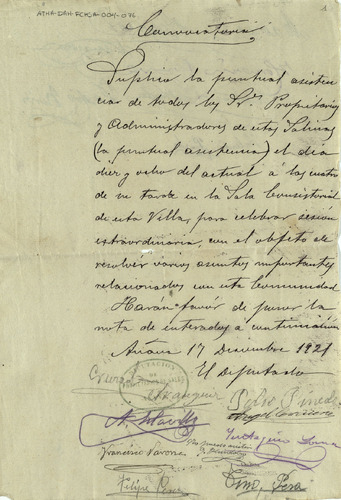 ATHA-DAH-FCHSA-004-076
1
Convocatoria
Suplico la puntual asisten
cia de todos los Sres Propietarios
y Administradores de estas Salinas
(la puntual asistencia) el día
diez y ocho del actual á las cuatro
de su tarde en la Sala Consistorial
de esta Villa, para celebrar sesión
extraordinaria, con el objeto de
resolver varios asuntos importantes
relacionados con esta Comunidad
Harán favor de poner la
nota de enterados a continuación
Añana 17 Diciembre 1921
El Diputado
Pedro Pinedo
Angel
Francisco Varona
Felipe